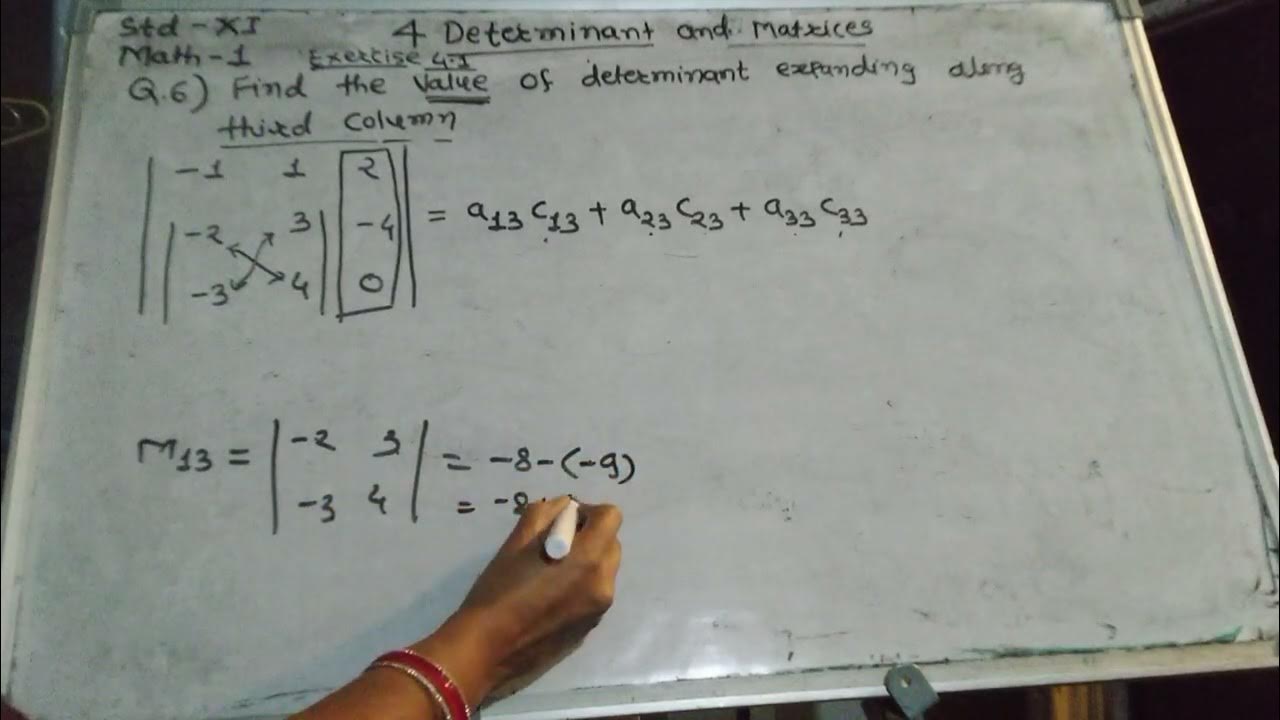 Std - XI 4 Determinant and Matrices
Math - 1 Exercise 4.1
Q.6) Find the value of determinant expanding along
third column
| -1 1 2 |
| -2 3 -4 | = a13 C13 + a23 C23 + a33 C33
| -3 4 0 |
M13 = | -2 3 | = -8 - (-9)
| -3 4 | = -8